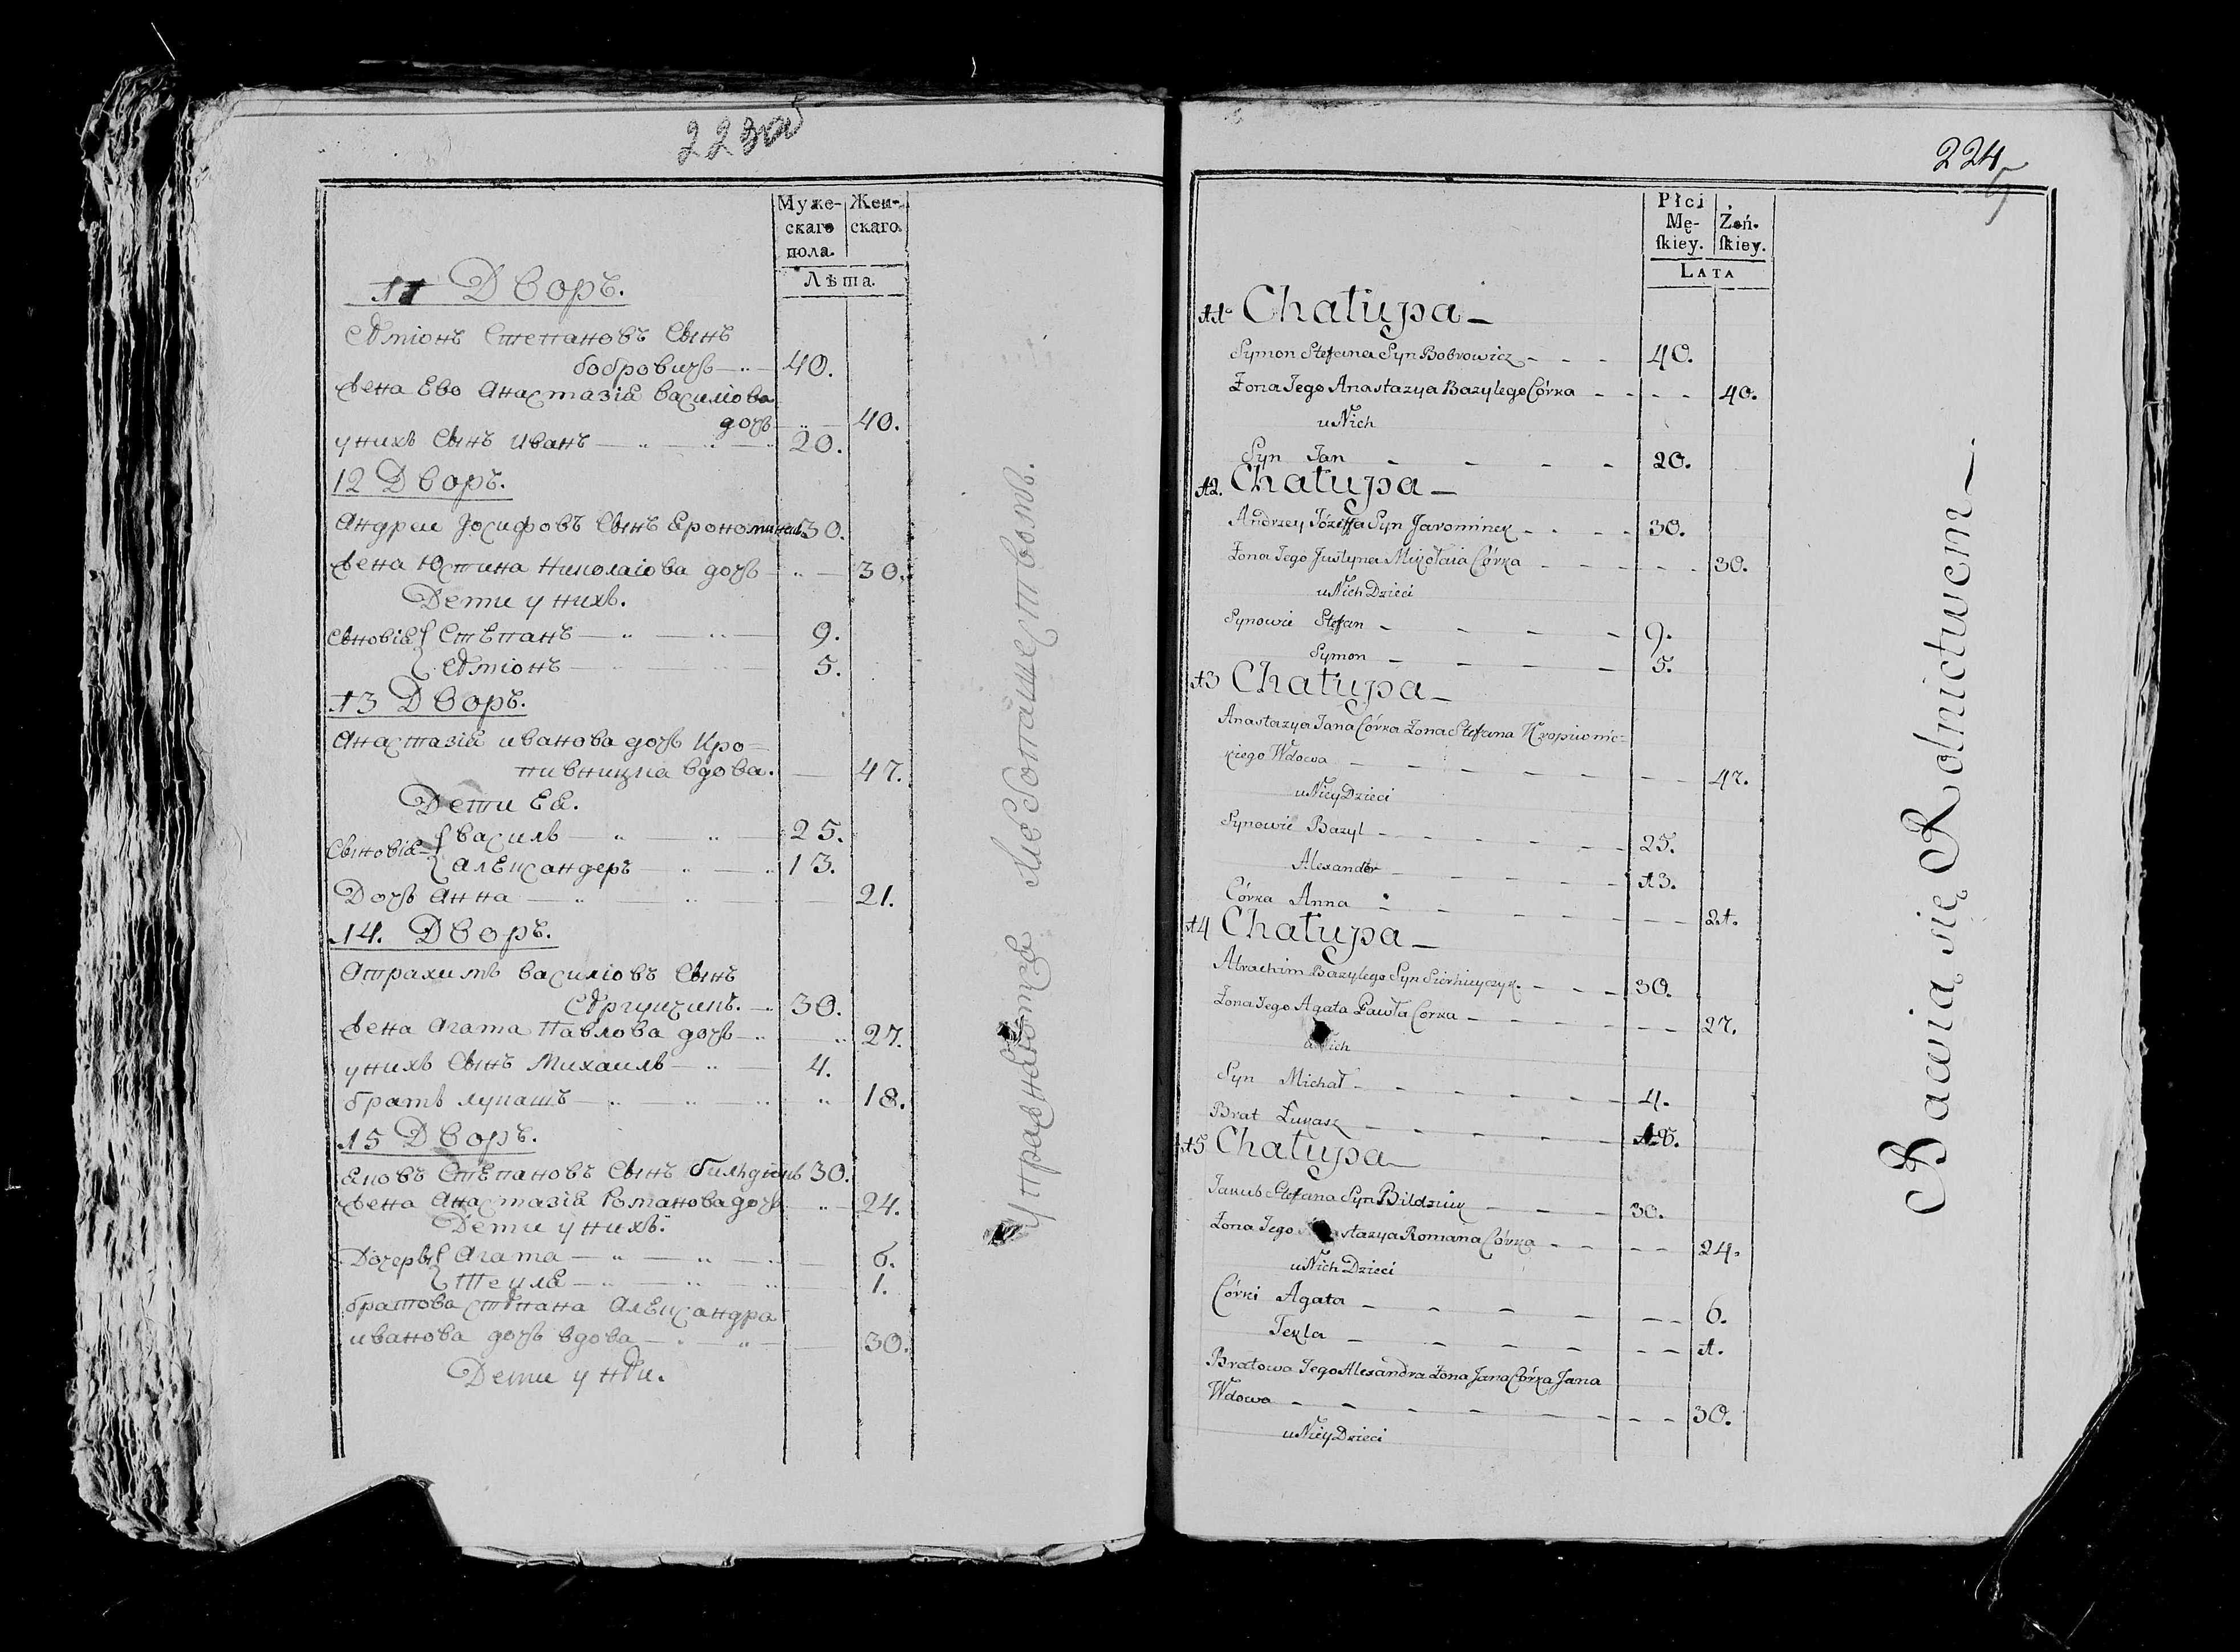 223об
Муже-
скаго
пола.
Жен-
скаго.
Лѣта.
11 Дворъ.
Сѣміонъ Степановъ Сынъ
бобровичь 40.
Жена Ево Анастазіа василіова
дочь 40.
у нихъ Сынъ иванъ 20.
12 Дворъ.
Андреи Іосифовъ Сынъ 30.
Жена Юстина Николаіова дочь 30.
Дети у нихъ.
Сыновіа Степанъ 9.
Сѣміонъ 5.
13 Дворъ.
Анастазіа иванова дочь Кро=
пивницка вдова. 47.
Дети Еа.
Сыновіа василь 25.
александеръ 13.
Дочь Анна 21.
14. Дворъ.
Атрахимъ василіовъ Сынъ
30.
Жена Агата Павлова дочь 27.
у нихъ Сынъ Михаиль 4.
братъ лукашъ 18.
15 Дворъ.
Яковъ Степановъ Сынъ 30.
Жена Анастазіа Романова дочь 24.
Дети у нихъ.
Дочеры Агата 6.
Текла 1.
братова Александра
иванова дочь вдова 30.
Дети у нѣи.
Упражняютца хлебопашествомъ.
224
Płci
Mę-
ſkiey.
Żeń-
ſkiey.
LATA
11 Chałupa
Symon Stefana Syn Bobrowicz 40.
Żona Jego Anastazya Bazylego Córka 40.
u Nich
Syn Jan 20.
12. Chałupa
Andrzey Józeffa Syn Jarominek 30.
Żona Jego Justyna Mikołaia Córka 30.
u Nich Dzieci
Synowie Stefan 9.
Symon 5.
13 Chałupa
Anastazya Jana Córka Żona Stefana Kropiwnic=
kiego Wdowa 47.
u Niey Dzieci
Synowie Bazyl 25.
Alexander 13.
Córka Anna 21.
14 Chałupa
Atrachim Bazylego Syn 30.
Żona Jego Agata Pawła Corka 27.
u Nich
Syn Michał 4.
Brat Łukasz 18.
15 Chałupa
Jakub Stefana Syn Bildziuk 30.
Żona Jego Anastazya Romana Córka 24.
u Nich Dzieci
Córki Agata 6.
Tekla 1.
Bratowa Jego Alexandra Żona Jana Córka Jana
Wdowa 30.
u Niey Dzieci
Bawią się Rolnictwem